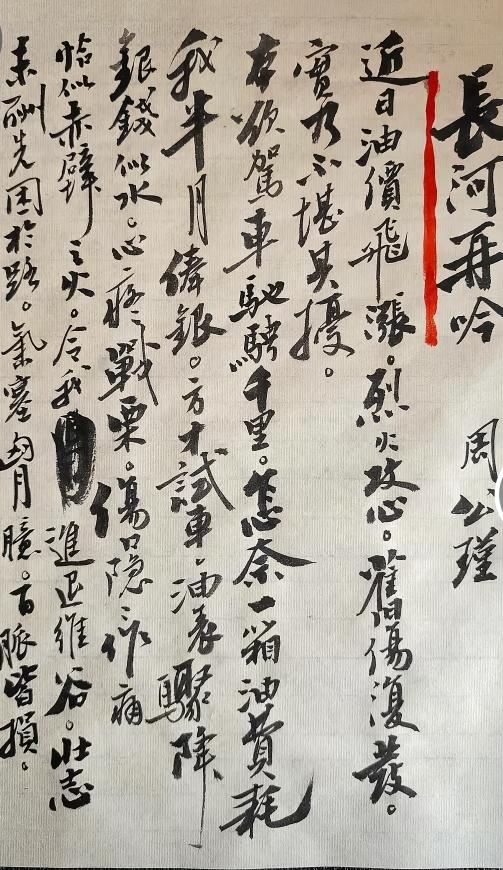 長河再吟 周公瑾
近日油價飛漲。烈火攻心。舊傷復發。
實乃不堪其擾。
本欲駕車馳騁千里。怎奈一箱油費耗
我半月俸銀。方才試車。油表驟降
銀錢似水。心疼戰栗。傷口隐隐作痛
恰似赤壁之火。令我進退維谷。壯志
未酬先困於路。氣塞胸臆。百脈皆損。